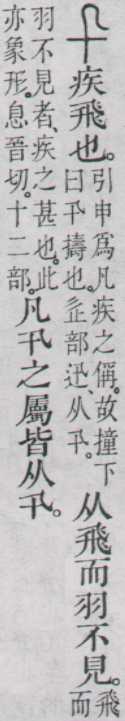 疾飛也。
引申爲凡疾之偁。故撞下
曰卂擣也。辵部迅、从卂。
从飛而羽不見。
飛
而
羽不見者、疾之甚也。此
亦象形。息晉切。十二部。
凡卂之屬皆从卂。